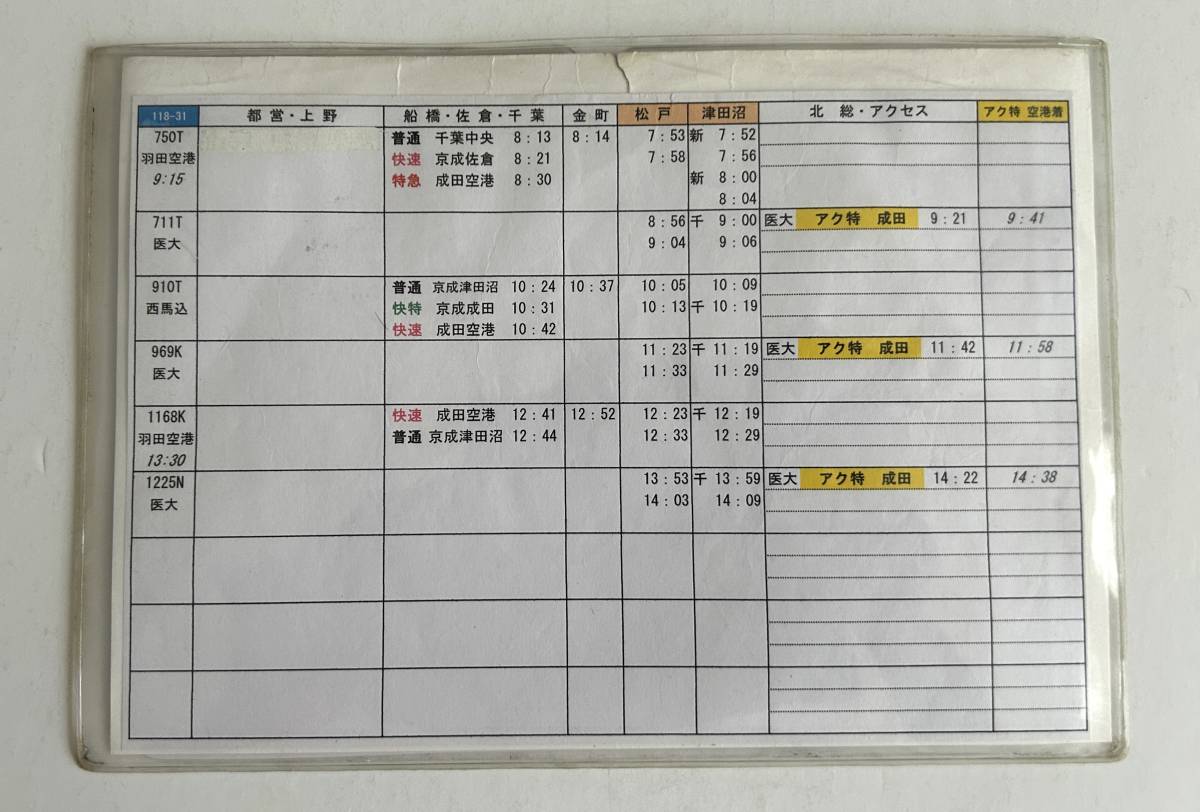 118-31 都営・上野 船橋・佐倉・千葉 金町 松戸 津田沼 北総・アクセス アク特 空港着
750T 普通 千葉中央 8:13 8:14 7:53 新 7:52
羽田空港 快速 京成佐倉 8:21 7:58 7:56
9:15 特急 成田空港 8:30 新 8:00
8:04
711T 8:56 千 9:00 医大 アク特 成田 9:21 9:41
医大 9:04 9:06
910T 普通 京成津田沼 10:24 10:37 10:05 10:09
西馬込 快特 京成成田 10:31 10:13 千 10:19
快速 成田空港 10:42
969K 11:23 千 11:19 医大 アク特 成田 11:42 11:58
医大 11:33 11:29
1168K 快速 成田空港 12:41 12:52 12:23 千 12:19
羽田空港 普通 京成津田沼 12:44 12:33 12:29
13:30
1225N 13:53 千 13:59 医大 アク特 成田 14:22 14:38
医大 14:03 14:09